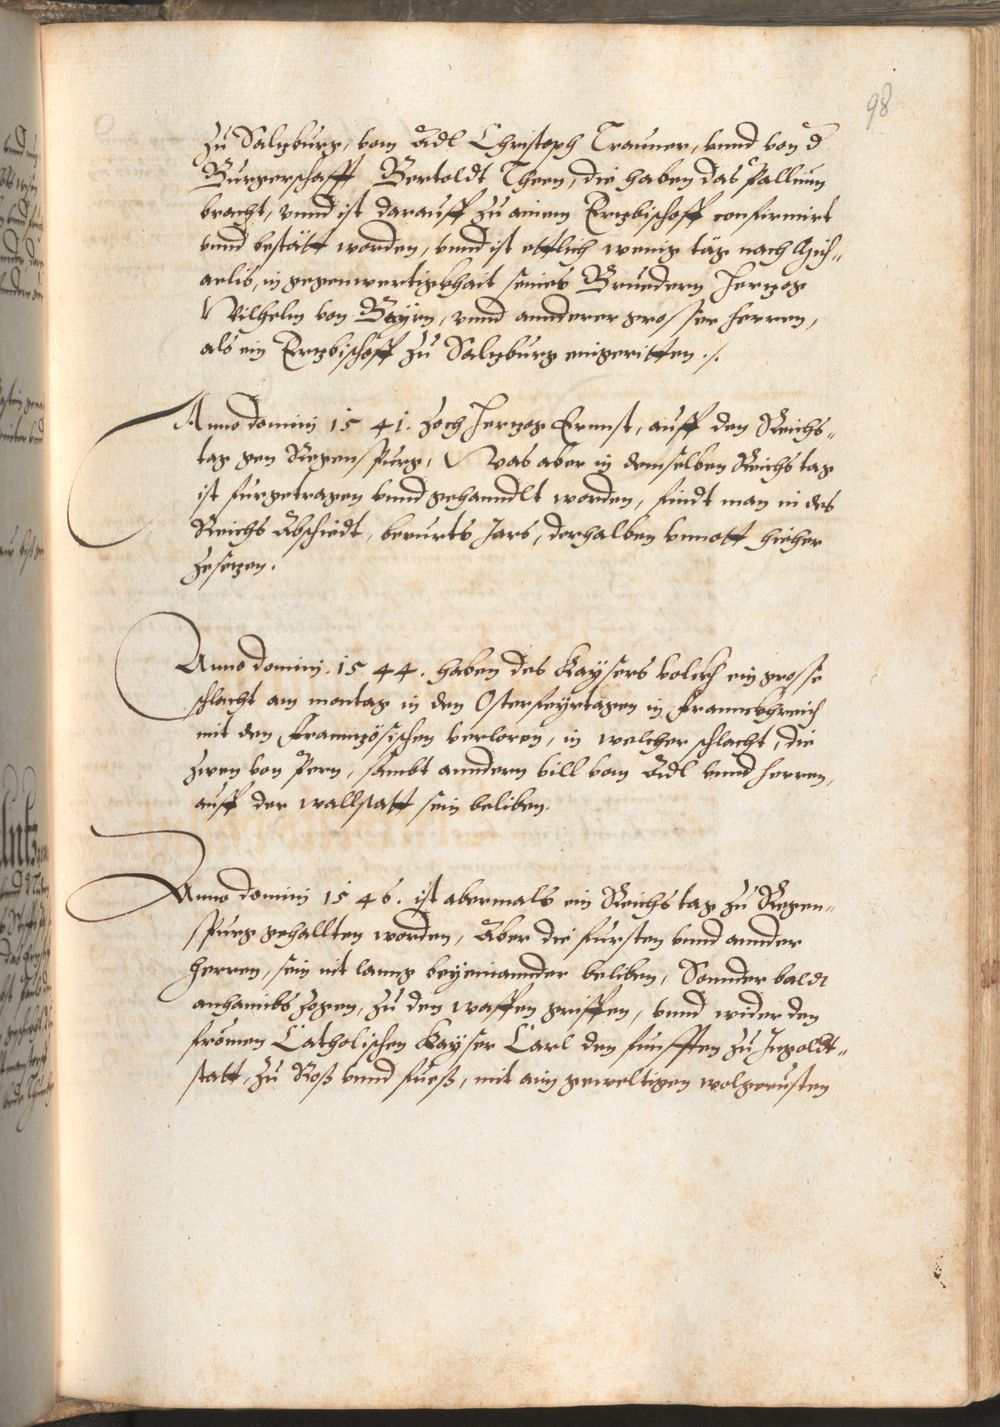 98
zu Saltzburg, vom Adl Christoph Trauner, vnnd von d
Burgerschafft Bertoldt Theen, die haben das Pallium
bracht, vnnd ist darauff zu ainem Ertzbischoff confirmirt
vnnd bestätt worden, vnnd ist ettlich wenig täg nach Mich„
aelis, in gegenwertigkhait seines Bruedern Hertzog
Wilhelm von Bayrn, vnnd annderer grosser herren,
als ein Ertzbischoff zu Saltzburg eingeritten ./.
Anno domini 1541. zoch Hertzog Ernnst, auff den Reichs„
tag gen Regenspurg, Was aber in demselben Reichstag
ist furgetragen vnnd gehanndlt worden, findt man in des
Reichs Abschiedt, berurts Jars, derhalben vnnott hieher
zesetzen.
Anno domini .1544. haben des Kaysers volckh ein grosse
schlacht am montag in den Osterfeyrtagen in Franneckhreich
mit den Franntzösischen verloren, in welcher schlacht, die
zwen von Pern, sambt anndern vill vom Adl vnnd herren,
auff der wallstatt sein beliben.
Anno domini 1546. ist abermals ein Reichstag zu Regen„
spurg gehallten worden, Aber die fursten vnnd annder
herren, sein nit lanng beyeinannder beliben, Sonnder baldt
anhaimbs zogen, zu den waffen griffen, vnnd wider den
fromen Catholischen Kayser Carl den funfften zu Ingoldt„
statt, zu Roß vnnd fueß, mit aim geweltigen wolgerusten